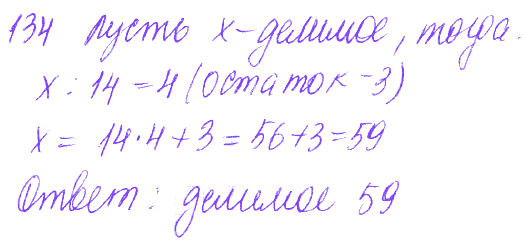 134 Пусть x-делимое, тогда.
x : 14 = 4 (остаток -3)
x = 14·4+3=56+3=59
Ответ: делимое 59